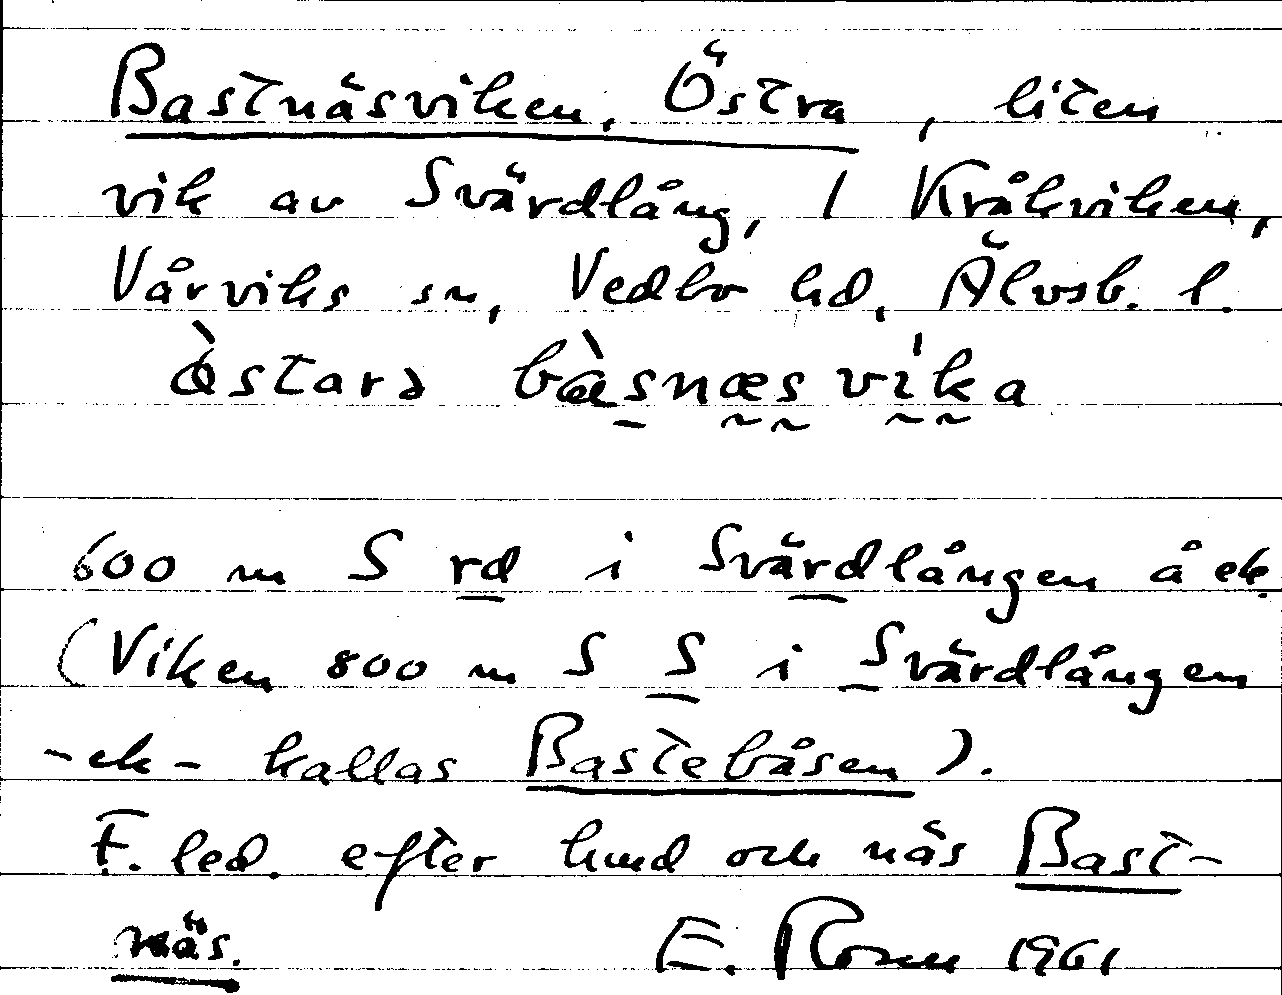 Bastnäsviken, Östra, liten
vik av Svärdlång, / Kråkviken,
Vårviks sn, Vedbo hd, Älvsb. l.
òstarə bàsnæs vìka
600 m S rd i Svärdlången å ek.
(Viken 800 m S S i Svärdlången
-ek- kallas Bastebåsen).
F. led. efter hmd och näs Bast-
näs. E. Rosen 1961